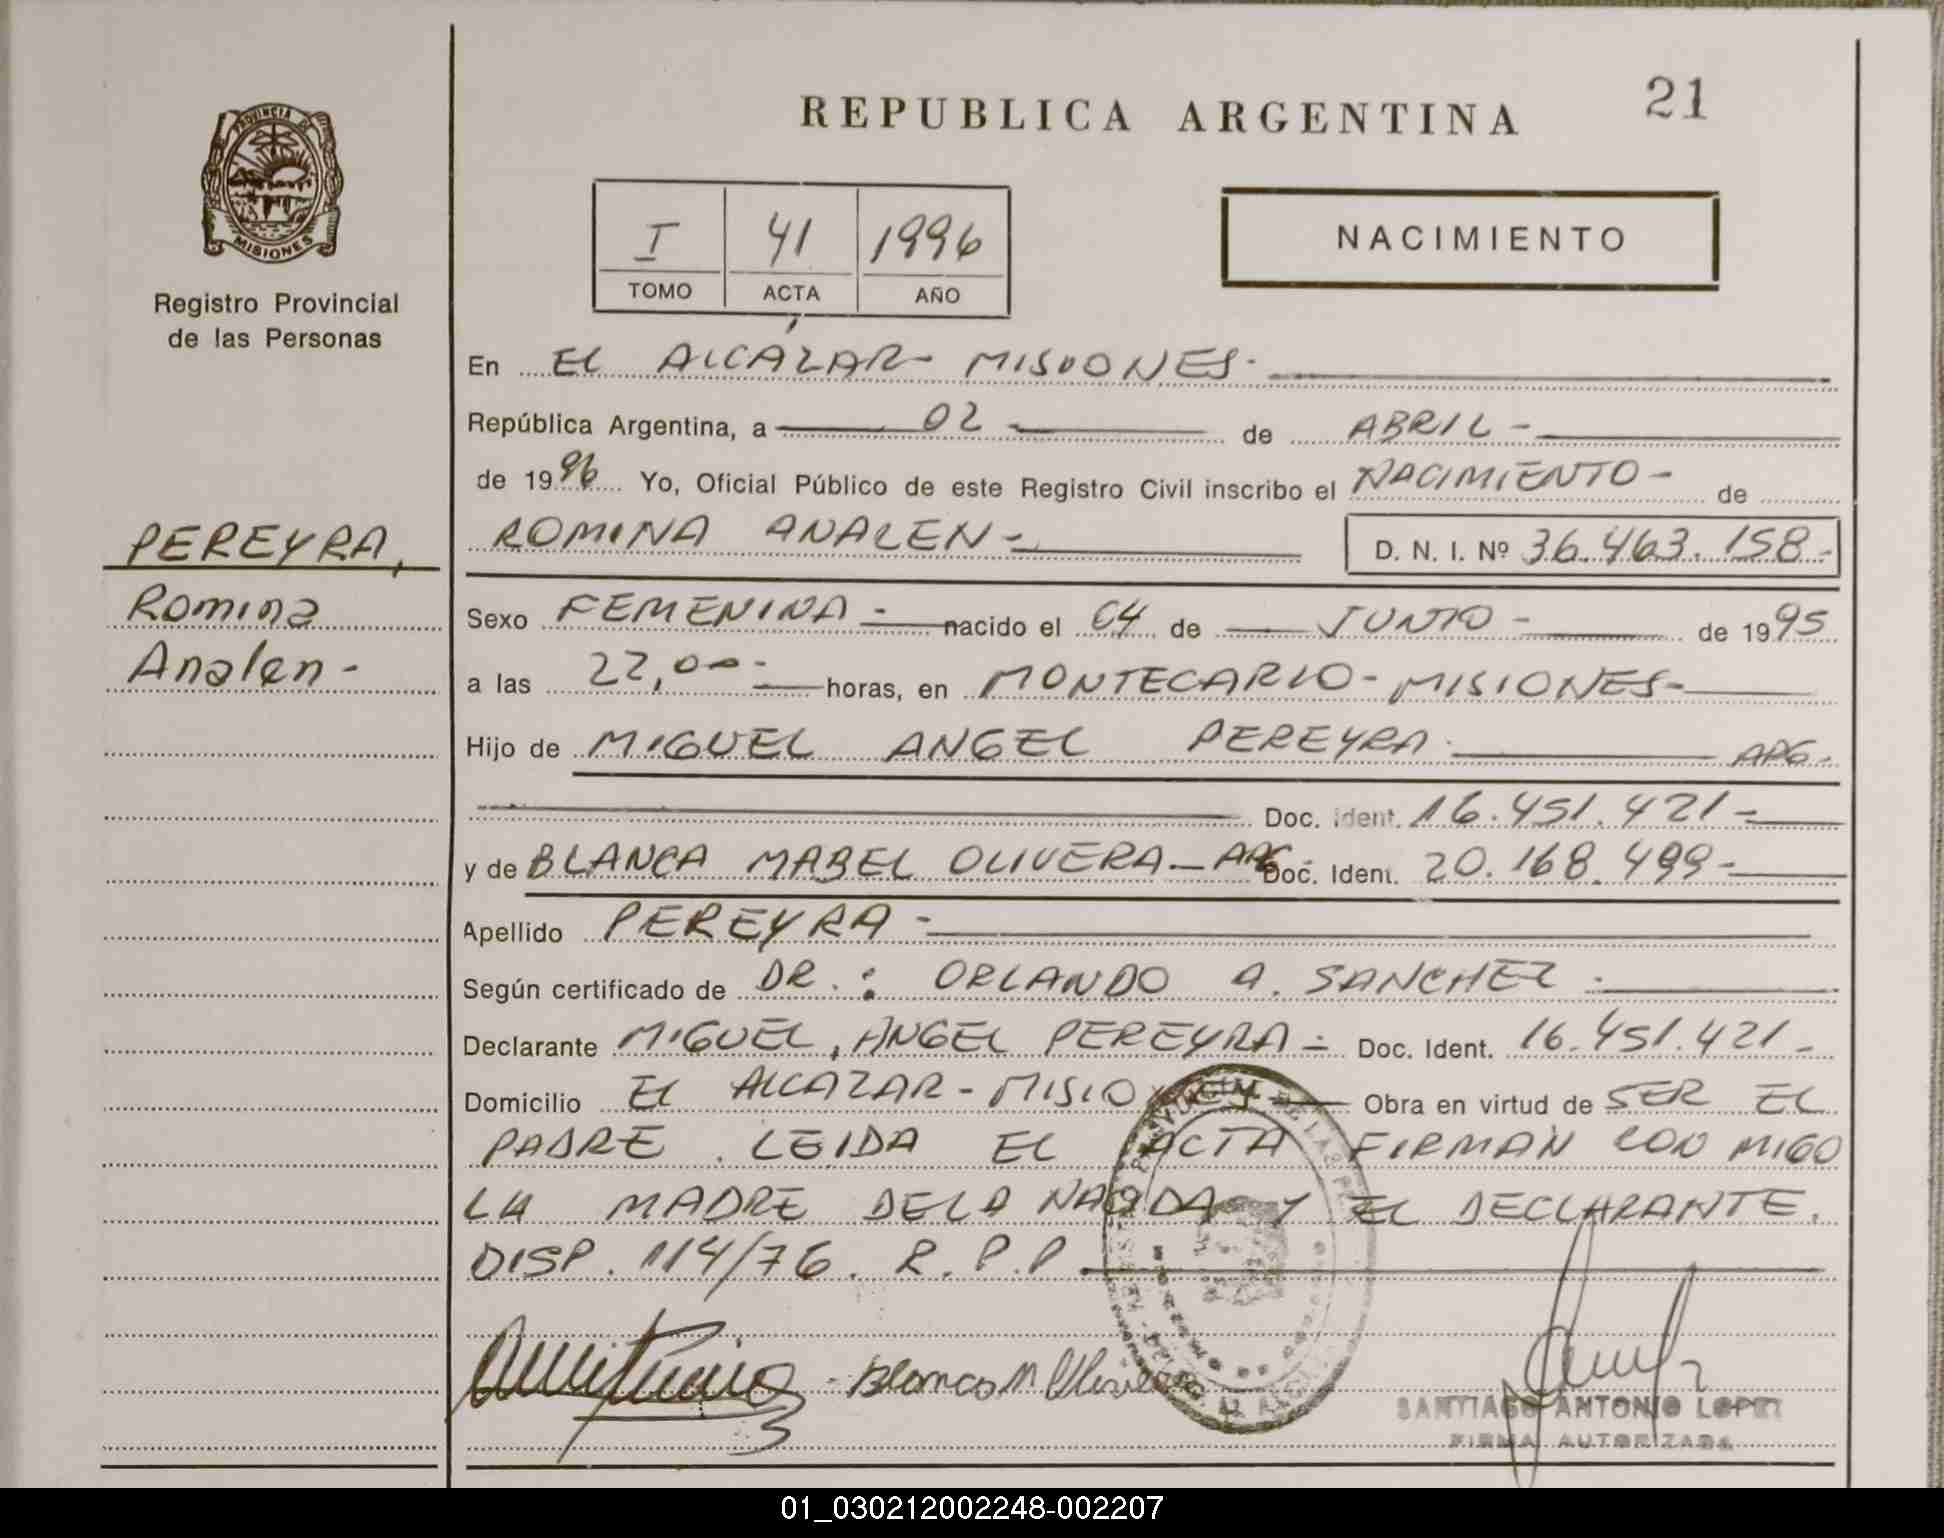 REPUBLICA ARGENTINA
21
PROVINCIA DE
MISIONES
Registro Provincial
de las Personas
I 41 1996
TOMO ACTA AÑO
NACIMIENTO
En EL ALCÁZAR- MISIONES-
República Argentina, a 02 de ABRIL-
de 1996 Yo, Oficial Público de este Registro Civil inscribo el NACIMIENTO- de
ROMINA ANALEN- D. N. I. Nº 36.463.158-
PEREYRA,
Romina
Analen-
Sexo FEMENINA- nacido el 04 de JUNIO- de 1995
a las 22,00- horas, en MONTECARLO- MISIONES-
Hijo de MIGUEL ANGEL PEREYRA- ARG.
Doc. Ident. 16.451.421-
y de BLANCA MABEL OLIVERA- ARG- Doc. Ident. 20.168.499-
Apellido PEREYRA-
Según certificado de DR.: ORLANDO A. SANCHEZ.
Declarante MIGUEL ANGEL PEREYRA- Doc. Ident. 16.451.421-
Domicilio EL ALCAZAR- MISIONES- Obra en virtud de SER EL
PADRE. LEIDA EL ACTA FIRMAN CON MIGO
LA MADRE DE LA NACIDA Y EL DECLARANTE.
DISP. 114/76. R.P.P
Blanca M Olivera
SANTIAGO ANTONIO LOPEZ
FIRMA AUTORIZADA
01_030212002248-002207